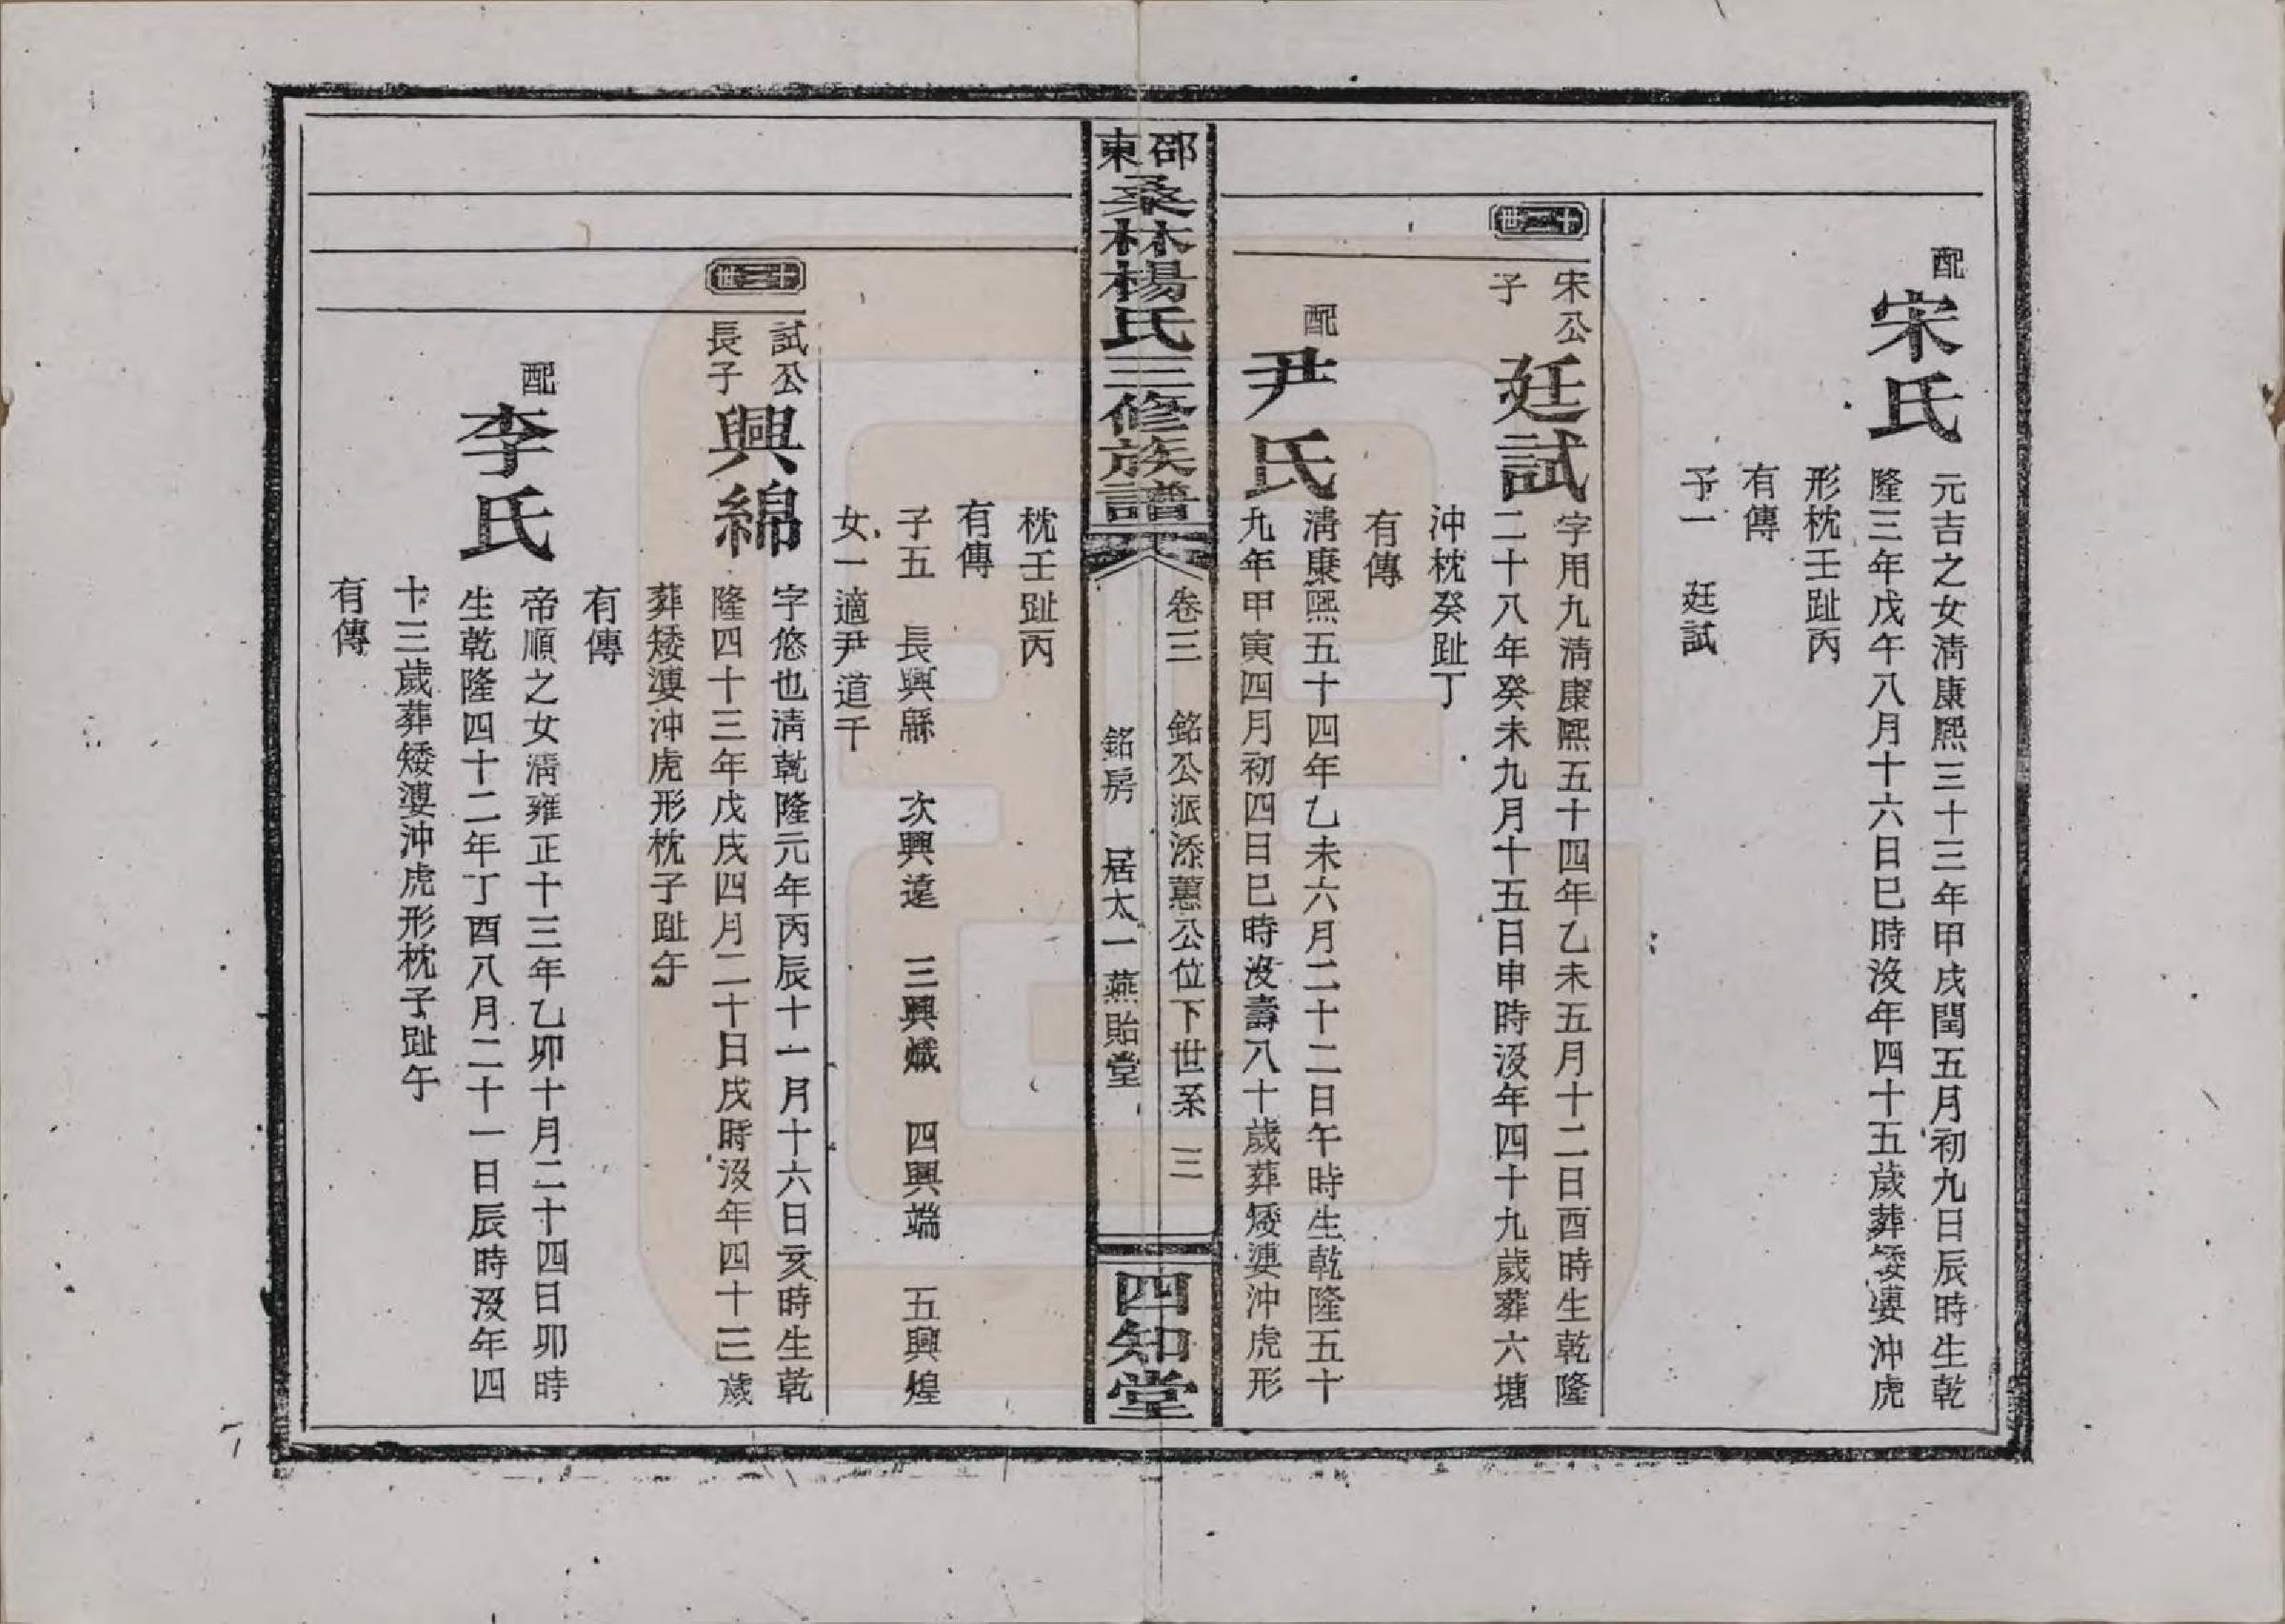 配
宋氏
元吉之女淸康熙三十三年甲戌閏五月初九日辰時生乾
隆三年戊午八月十六日巳時沒年四十五歲葬矮婆沖虎
形枕壬趾丙
有傳
子一 廷試
十二世
宋公
子
廷試
字用九淸康熙五十四年乙未五月十二日酉時生乾隆
二十八年癸未九月十五日申時沒年四十九歲葬六塘
沖枕癸趾丁
有傳
配
尹氏
淸康熙五十四年乙未六月二十二日午時生乾隆五十
九年甲寅四月初四日巳時沒壽八十歲葬矮婆沖虎形
邵東桑林楊氏三修族譜
卷三 銘公派添蕙公位下世系 三
銘房 居太一燕貽堂
四知堂
枕壬趾丙
有傳
子五 長興緜 次興遠 三興熾 四興端 五興煌
女一適尹道千
十三世
試公
長子
興綿
字悠也淸乾隆元年丙辰十一月十六日亥時生乾
隆四十三年戊戌四月二十日戌時沒年四十三歲
葬矮婆沖虎形枕子趾午
有傳
配
李氏
帝順之女淸雍正十三年乙卯十月二十四日卯時
生乾隆四十二年丁酉八月二十一日辰時沒年四
十三歲葬矮婆沖虎形枕子趾午
有傳